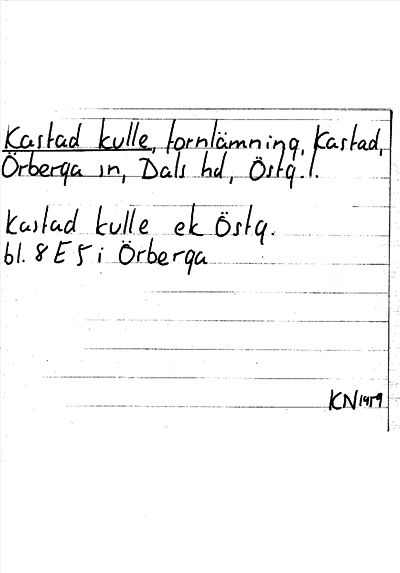 Kastad kulle, fornlämning, Kastad,
Örberga sn, Dals hd, Östg. l.
Kastad kulle ek Östg.
bl. 8 E 5 i Örberga
KN 1959